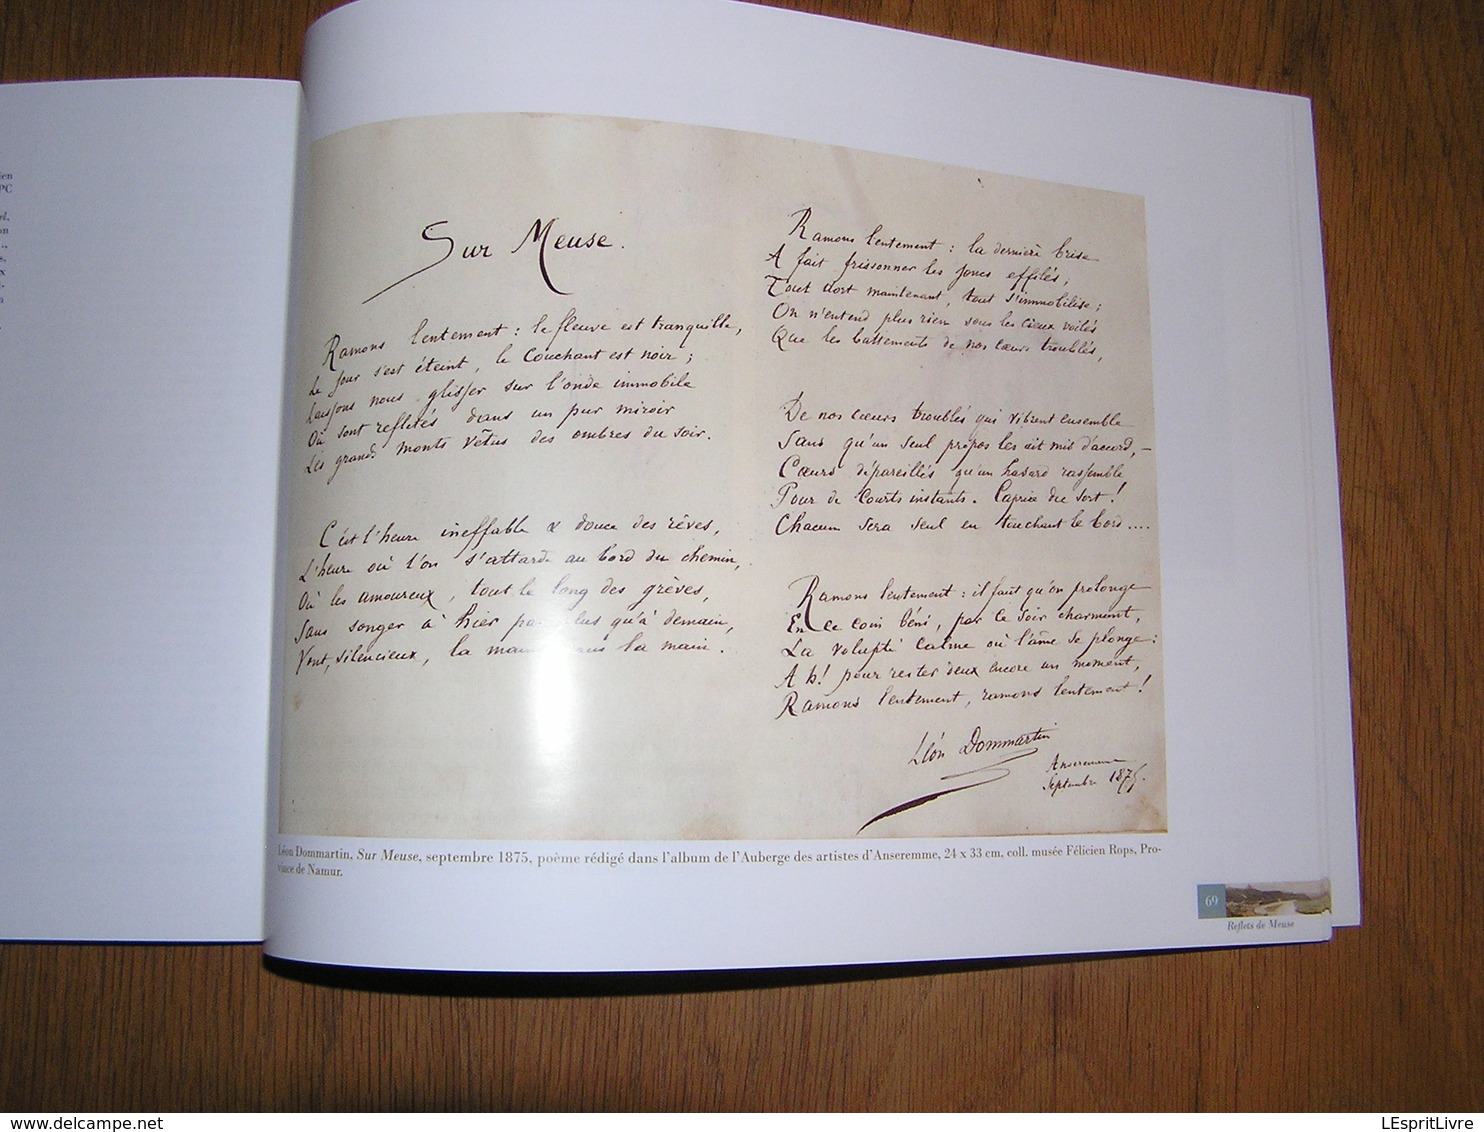 ien
PC
el.
on
..,
s.
x
n
Sur Meuse.
Ramons lentement : le fleuve est tranquille,
Le jour s'est éteint, le Couchant est noir ;
Laissons nous glisser sur l'onde immobile
Où sont reflétés dans un pur miroir
Les grands monts vêtus des ombres du soir.
C'est l'heure ineffable & douce des rêves,
L'heure où l'on s'attarde au bord du chemin,
Où les amoureux, tout le long des grèves,
Sans songer à hier pas plus qu'à demain,
Vont, silencieux, la main dans la main.
Ramons lentement : la dernière brise
A fait frissonner les joncs effilés,
Tout dort maintenant, tout s'immobilise ;
On n'entend plus rien sous les cieux voilés
Que les battements de nos cœurs troublés,
De nos cœurs troublés qui vibrent ensemble
Sans qu'un seul propos les ait mis d'accord, –
Cœurs dépareillés qu'un hasard rassemble
Pour de courts instants. Caprice du sort !
Chacun sera seul en touchant le bord ....
Ramons lentement : il faut qu'on prolonge
En ce coin béni, par ce soir charmant,
La volupté calme où l'âme se plonge :
Ah! pour rester deux encore un moment,
Ramons lentement, ramons lentement !
Léon Dommartin
Anseremme
Septembre 1875.
Léon Dommartin, Sur Meuse, septembre 1875, poème rédigé dans l'album de l'Auberge des artistes d'Anseremme, 24 x 33 cm, coll. musée Félicien Rops, Pro-
vince de Namur.
69
Reflets de Meuse
delcampe.net
LEspritLivre